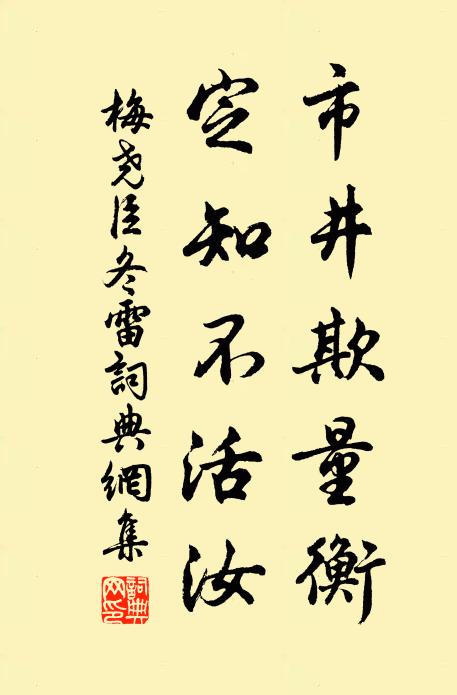 市井欺量衡
定知不活汝
梅堯臣冬雷詞典網集
詞典网印